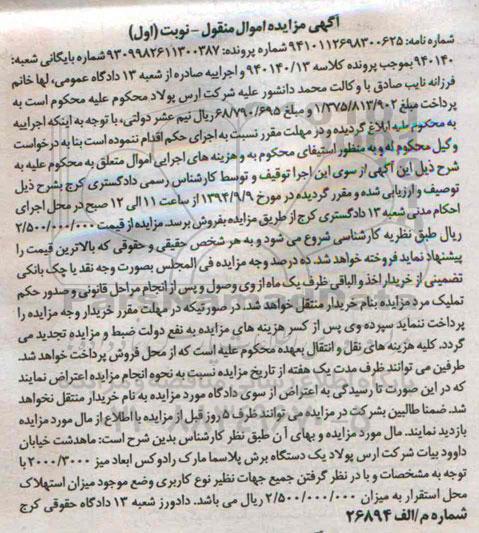 آگهی مزایده اموال منقول - نوبت (اول)
شماره نامه: ۹۴۱۰۱۱۲۶۹۸۳۰۰۶۲۵ شماره پرونده: ۹۳۰۹۹۸۲۶۱۱۳۰۰۳۸۷ شماره بایگانی شعبه:
۹۴۰۱۴۰ بموجب پرونده کلاسه ۹۴۰۱۴۰/۱۳ و اجراییه صادره از شعبه ۱۳ دادگاه عمومی، لها خانم
فرزانه نایب صادق با وکالت محمد دانشور علیه شرکت ارس پولاد محکوم علیه محکوم است به
پرداخت مبلغ ۱/۳۷۵/۸۱۳/۹۰۲ و مبلغ ۶۸/۷۹۰/۶۹۵ ریال نیم عشر دولتی، با توجه به اینکه اجراییه
به محکوم علیه ابلاغ گردیده و در مهلت مقرر نسبت به اجرای حکم اقدام ننموده است بنا به درخواست
وکیل محکوم له و به منظور استیفای محکوم به و هزینه های اجرایی اموال متعلق به محکوم علیه به
شرح ذیل این آگهی از سوی این اجرا توقیف و توسط کارشناس رسمی دادگستری کرج بشرح ذیل
توصیف و ارزیابی شده و مقرر گردیده در مورخ ۱۳۹۴/۹/۹ از ساعت ۱۱ الی ۱۲ صبح در محل اجرای
احکام مدنی شعبه ۱۳ دادگستری کرج از طریق مزایده بفروش برسد. مزایده از قیمت ۲/۵۰۰/۰۰۰/۰۰۰
ریال طبق نظریه کارشناسی شروع می شود و به هر شخص حقیقی و حقوقی که بالاترین قیمت را
پیشنهاد نماید فروخته خواهد شد. ده درصد وجه مزایده فی المجلس بصورت وجه نقد یا چک بانکی
تضمینی از خریدار اخذ و الباقی ظرف یک ماه از وی وصول و پس از انجام مراحل قانونی و صدور حکم
تملیک مرد مزایده بنام خریدار منتقل خواهد شد. در صورتیکه در مهلت مقرر خریدار وجه مزایده را
پرداخت ننماید سپرده وی پس از کسر هزینه های مزایده به نفع دولت ضبط و مزایده تجدید می
گردد. کلیه هزینه های نقل و انتقال بعهده محکوم علیه است که از محل فروش پرداخت خواهد شد.
طرفین می توانند ظرف مدت یک هفته از تاریخ مزایده نسبت به نحوه انجام مزایده اعتراض نمایند
که در این صورت تا رسیدگی به اعتراض از سوی دادگاه مورد مزایده به نام خریدار منتقل نخواهد
شد. ضمنا طالبین بشرکت در مزایده می توانند ظرف ۵ روز قبل از مزایده با اطلاع از مال مورد مزایده
بازدید نمایند. مال مورد مزایده و بهای آن طبق نظر کارشناس بدین شرح است: ماهدشت خیابان
داوود بیات شرکت ارس پولاد یک دستگاه برش پلاسما مارک رادوکس ابعاد میز ۲۰۰۰/۳۰۰۰ با
توجه به مشخصات و با در نظر گرفتن جمیع جهات نظیر نوع کاربری وضع موجود میزان استهلاک
محل استقرار به میزان ۲/۵۰۰/۰۰۰/۰۰۰ ریال می باشد. دادورز شعبه ۱۳ دادگاه حقوقی کرج
شماره م/الف ۲۶۸۹۴